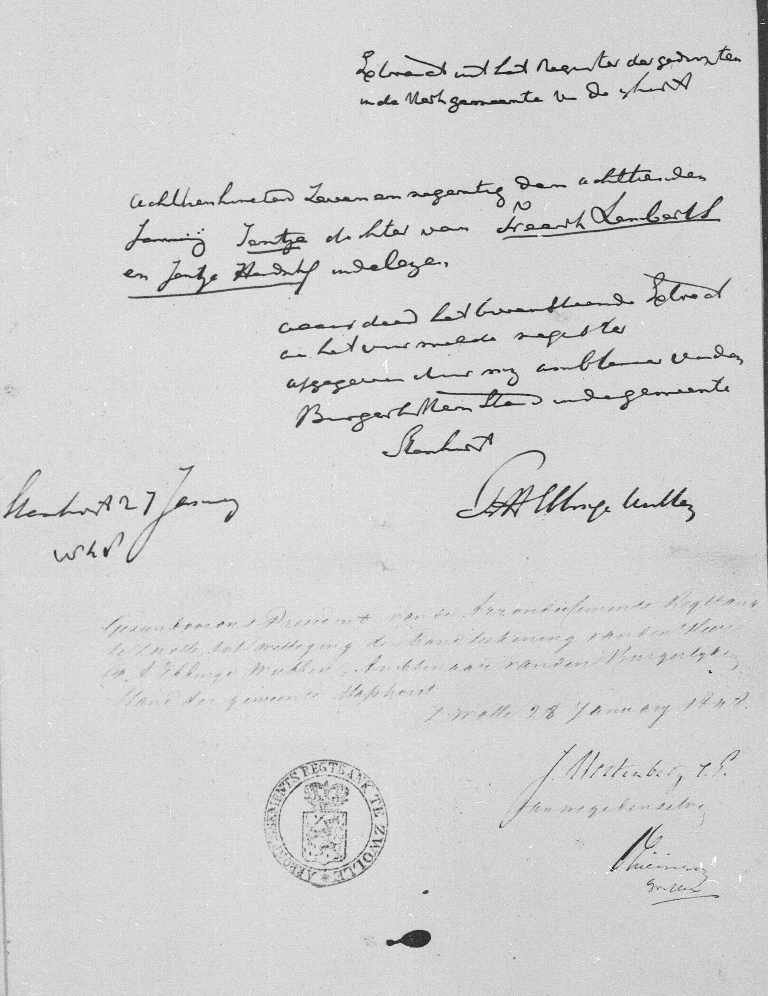 Extract uit het Register der gedoopten
in de Kerkgemeente van de
achttienhonderd Zeven en negentig den achttienden
January Jentje dochter van Freerk Lamberts
en Jentje Hendriks indeleze.
waardeerd het bovenstaande Extract
aan het voormelde register
afgegeven door my ambtenaar van den
Burgerlyken Stand in de gemeente
Staphorst
Staphorst 27 January
1848
F A Ebbinge Wubben
Gezien door ons President van de Arrondissements Regtbank
te Zwolle, tot wettiging der handteekening van den Heer
F. A. Ebbinge Wubben, Ambtenaar van den Burgerlyken
Stand der gemeente Staphorst
Zwolle 28 January 1848.
J.
ARRONDISSEMENTS REGTBANK TE ZWOLLE